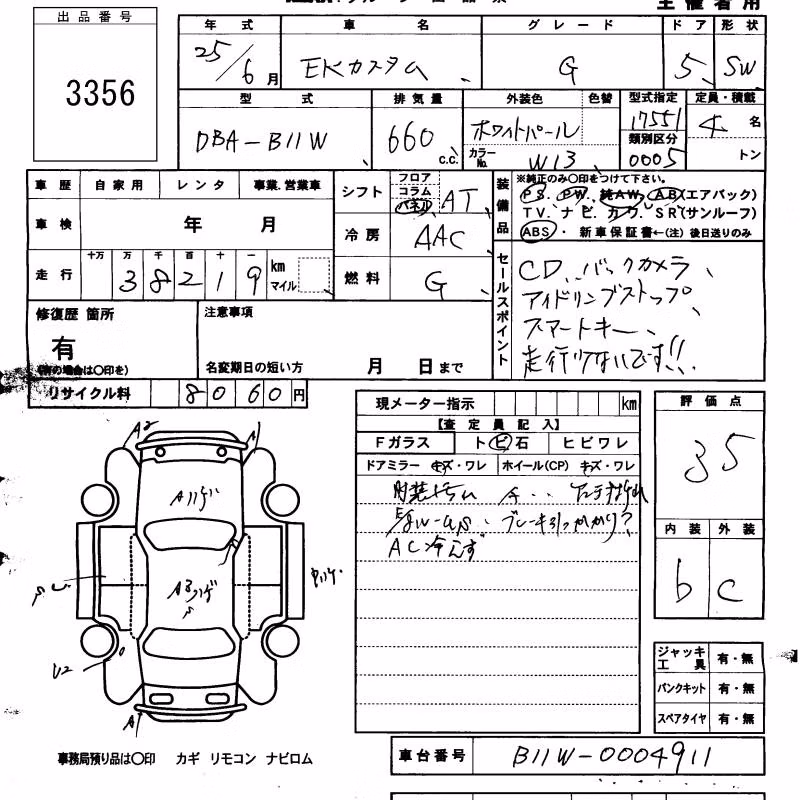 出品番号
3356
主催者用
年式 車名 グレード ドア 形状
25/6月 EKカスタム G 5 SW
型式 排気量 外装色 色替 型式指定 定員・積載
DBA-B11W 660 c.c. ホワイトパール 17551 4名
カラーNo. W13 類別区分 0005 トン
車歴 自家用 レンタ 事業.営業車
シフト フロア コラム パネル AT
装備品 ※純正のみ〇印をつけて下さい。
PS. PW. 純AW. AB(エアバッグ)
TV. ナビ. カワ. SR(サンルーフ)
ABS・ 新車保証書←(注)後日送りのみ
車検 年 月
冷房 AAC
走行 十万 万 千 百 十 一
38219 km マイル
燃料 G
セールスポイント
CD、バックカメラ、
アイドリングストップ、
スマートキー、
走行少ないです!!
修復歴 箇所
有
(有の場合は〇印を)
注意事項
名変期日の短い方 月 日まで
リサイクル料 8060円
現メーター指示 km
【査定員記入】
Fガラス トビ石 ヒビワレ
ドアミラー キズ・ワレ ホイール(CP) キズ・ワレ
ブレーキ引っかかり?
AC冷えず
評価点
35
内装 外装
b C
A2 A1
A1
U2
ジャッキ 工具 有・無
パンクキット 有・無
スペアタイヤ 有・無
事務局預り品は〇印 カギ リモコン ナビロム
車台番号 B11W-0004911